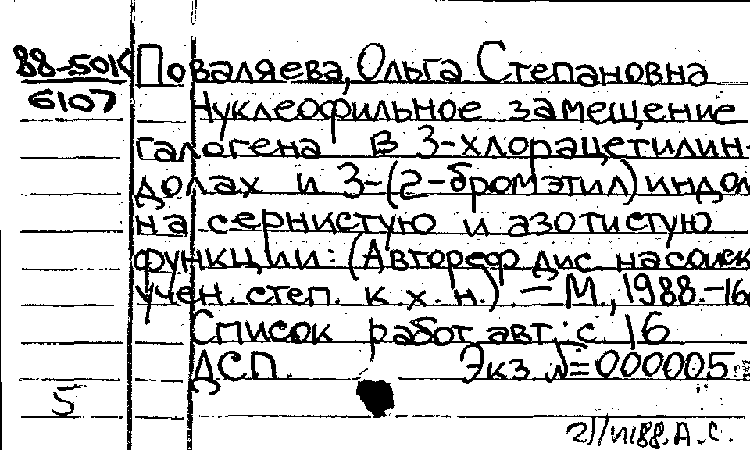 88-50К
6107
Поваляева, Ольга Степановна
Нуклеофильное замещение
галогена в 3-хлорацетилин-
долах и 3-(2-бромэтил)индол
на сернистую и азотистую
функции: (Автореф дис. на соиск
учен. степ. к. х. н.) - М., 1988.-16
Список работ авт.: с. 16
ДСП. Экз. №=000005
5
А. С.